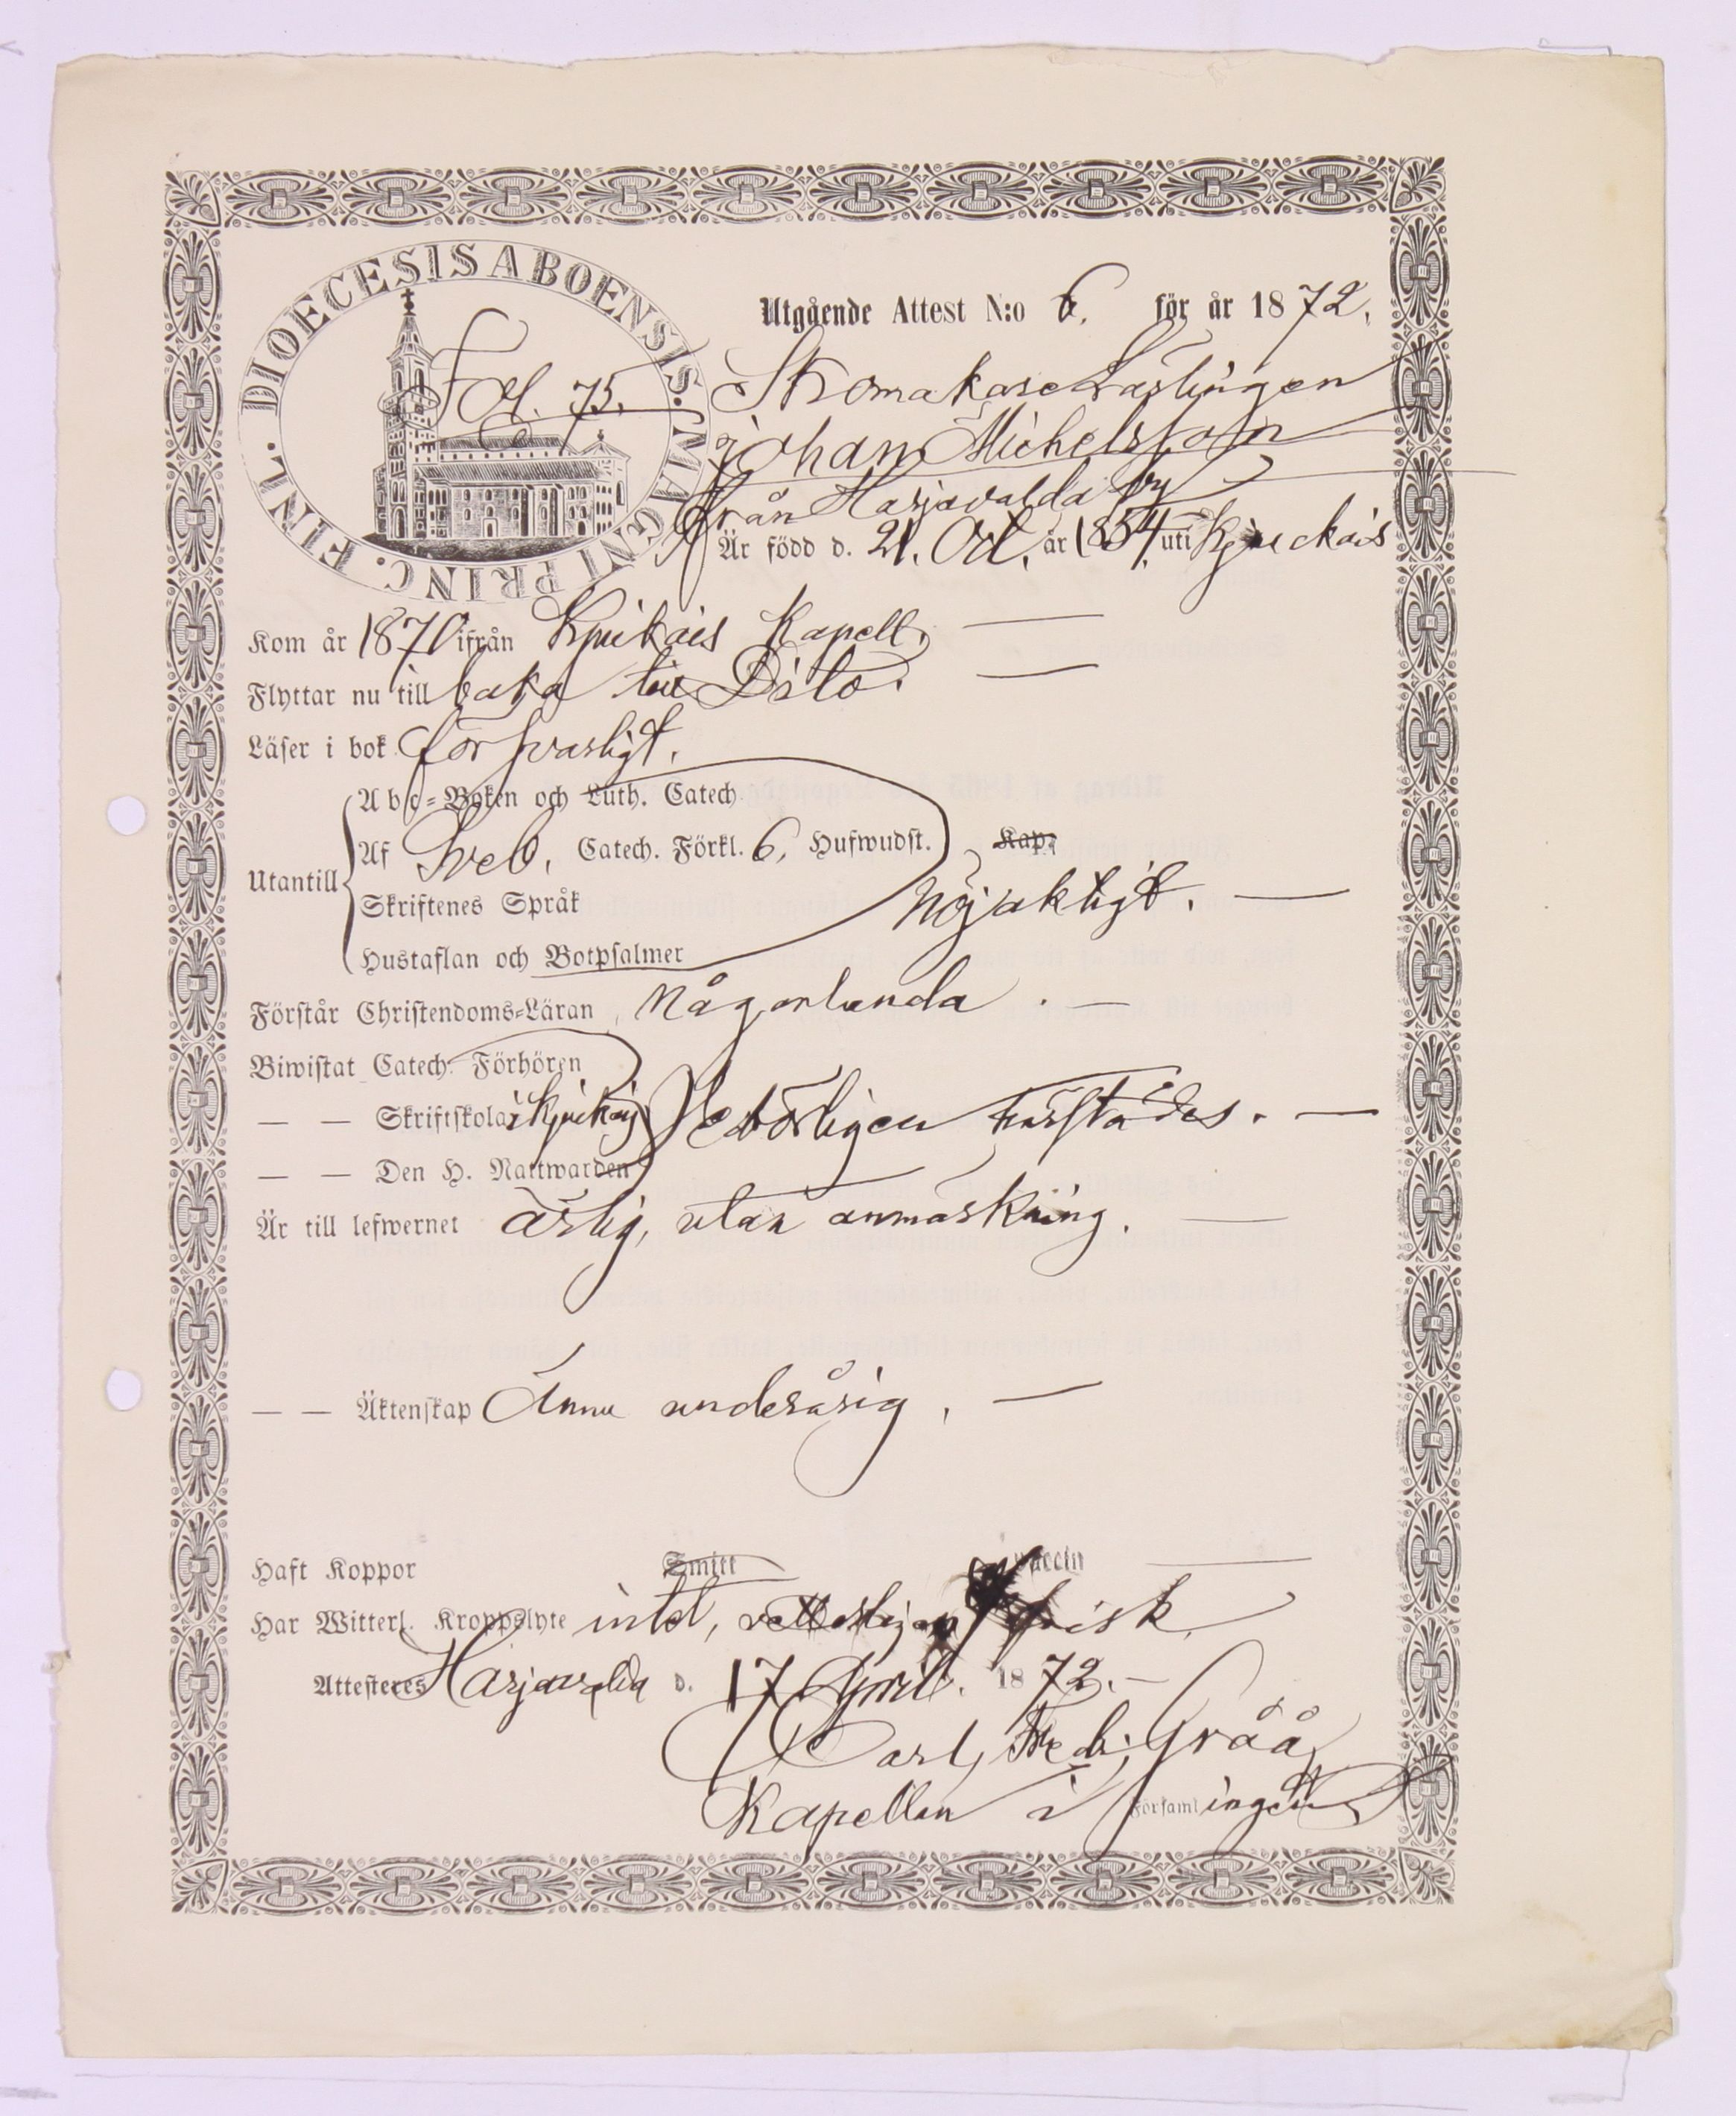 DIOECESIS ABOENSIS. MAGNI PRINC. FINL.
Fol. 75.
Utgående Attest N:o 6. för år 1872.
Skomakare Lärlingen
Johan Michelsson
från Harjavalda by
Är född d. 21. Oct. år 1854. uti Kjuckais
Kom år 1870 ifrån Kjukais Kapell.
Flyttar nu till baka till Dito.
Läser i bok försvarligt.
Abc-Boken och Luth. Catech.
Af Sveb. Catech. Förkl. 6. Hufwudst. Kap.
Utantill
Nöjaktigt.
Skriftenes Språk
Hustaflan och Botpsalmer
Förstår Christendoms-Läran Någorlunda.
Biwistat Catech. Förhören
— — Skriftskola i Kjukais Behörigen härstädes.
— — Den H. Nattwarden
Är till lefwernet ärlig, utan anmärkning.
— — Äktenskap Ännu underårig.
Haft Koppor Smitt vaccin
Har Witterl. Kroppslyte intet, frisk
Attesteres Harjavalda d. 17 April. 1872.
Carl Fredr. Gråå
Kapellan i Församlingen